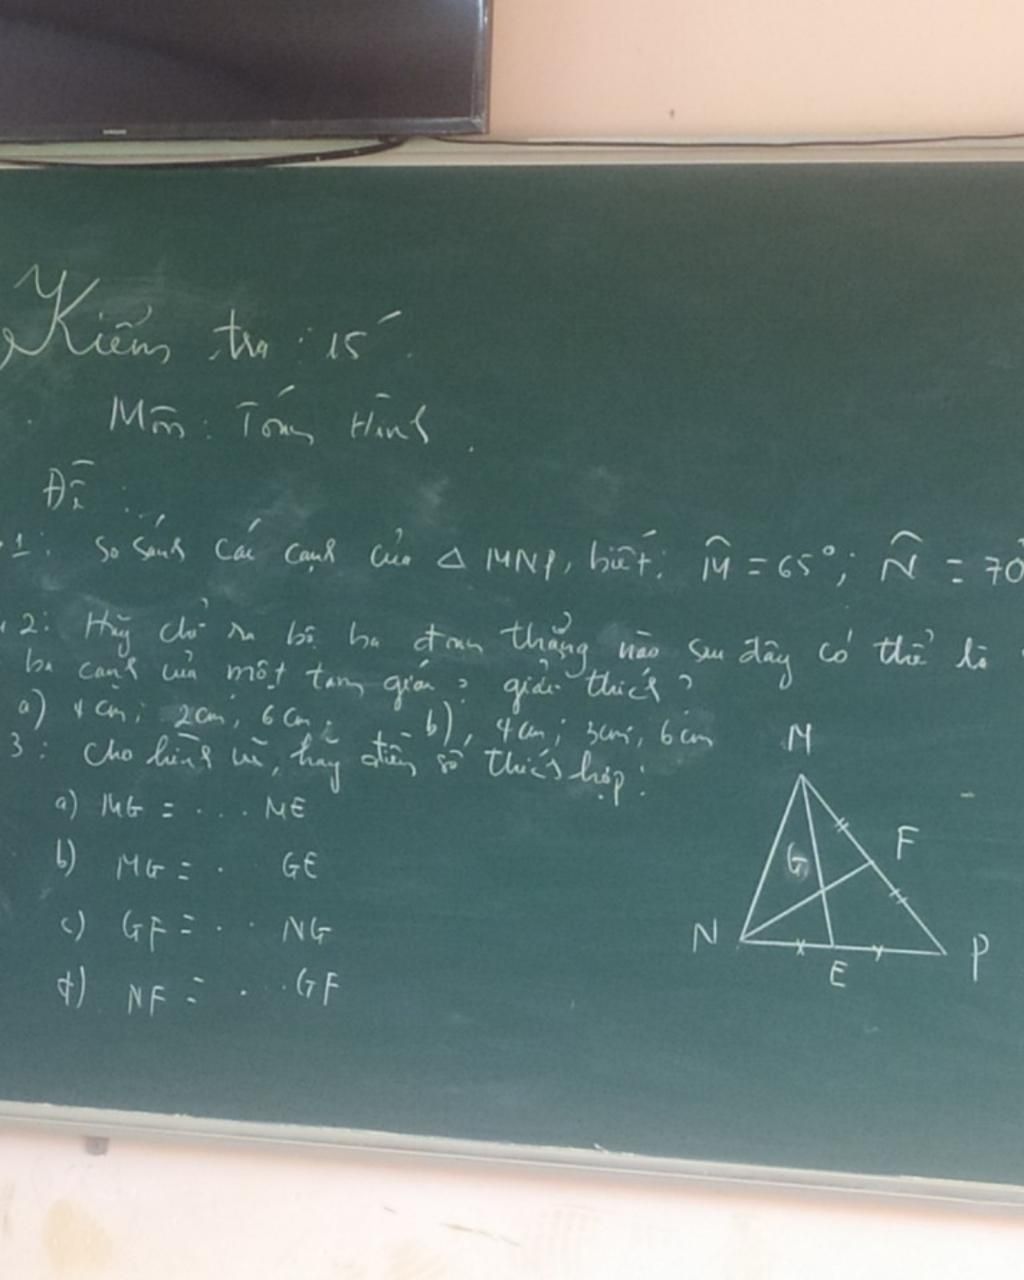 Kiểm tra : 15'
Môn : Toán Hình
Đề :
1: So sánh các cạnh của △ MNP, biết: M̂ = 65°; N̂ = 70°
2: Hãy chỉ ra bộ ba đoạn thẳng nào sau đây có thể là
ba cạnh của một tam giác ? giải thích ?
a) 4 cm; 2cm; 6 cm; b), 4 cm; 3cm; 6cm
3: Cho hình vẽ, hãy điền số thích hợp:
a) MG = ... ME
b) MG = . GE
c) GF = .. NG
d) NF = ... GF
M
F
G
N
E
P